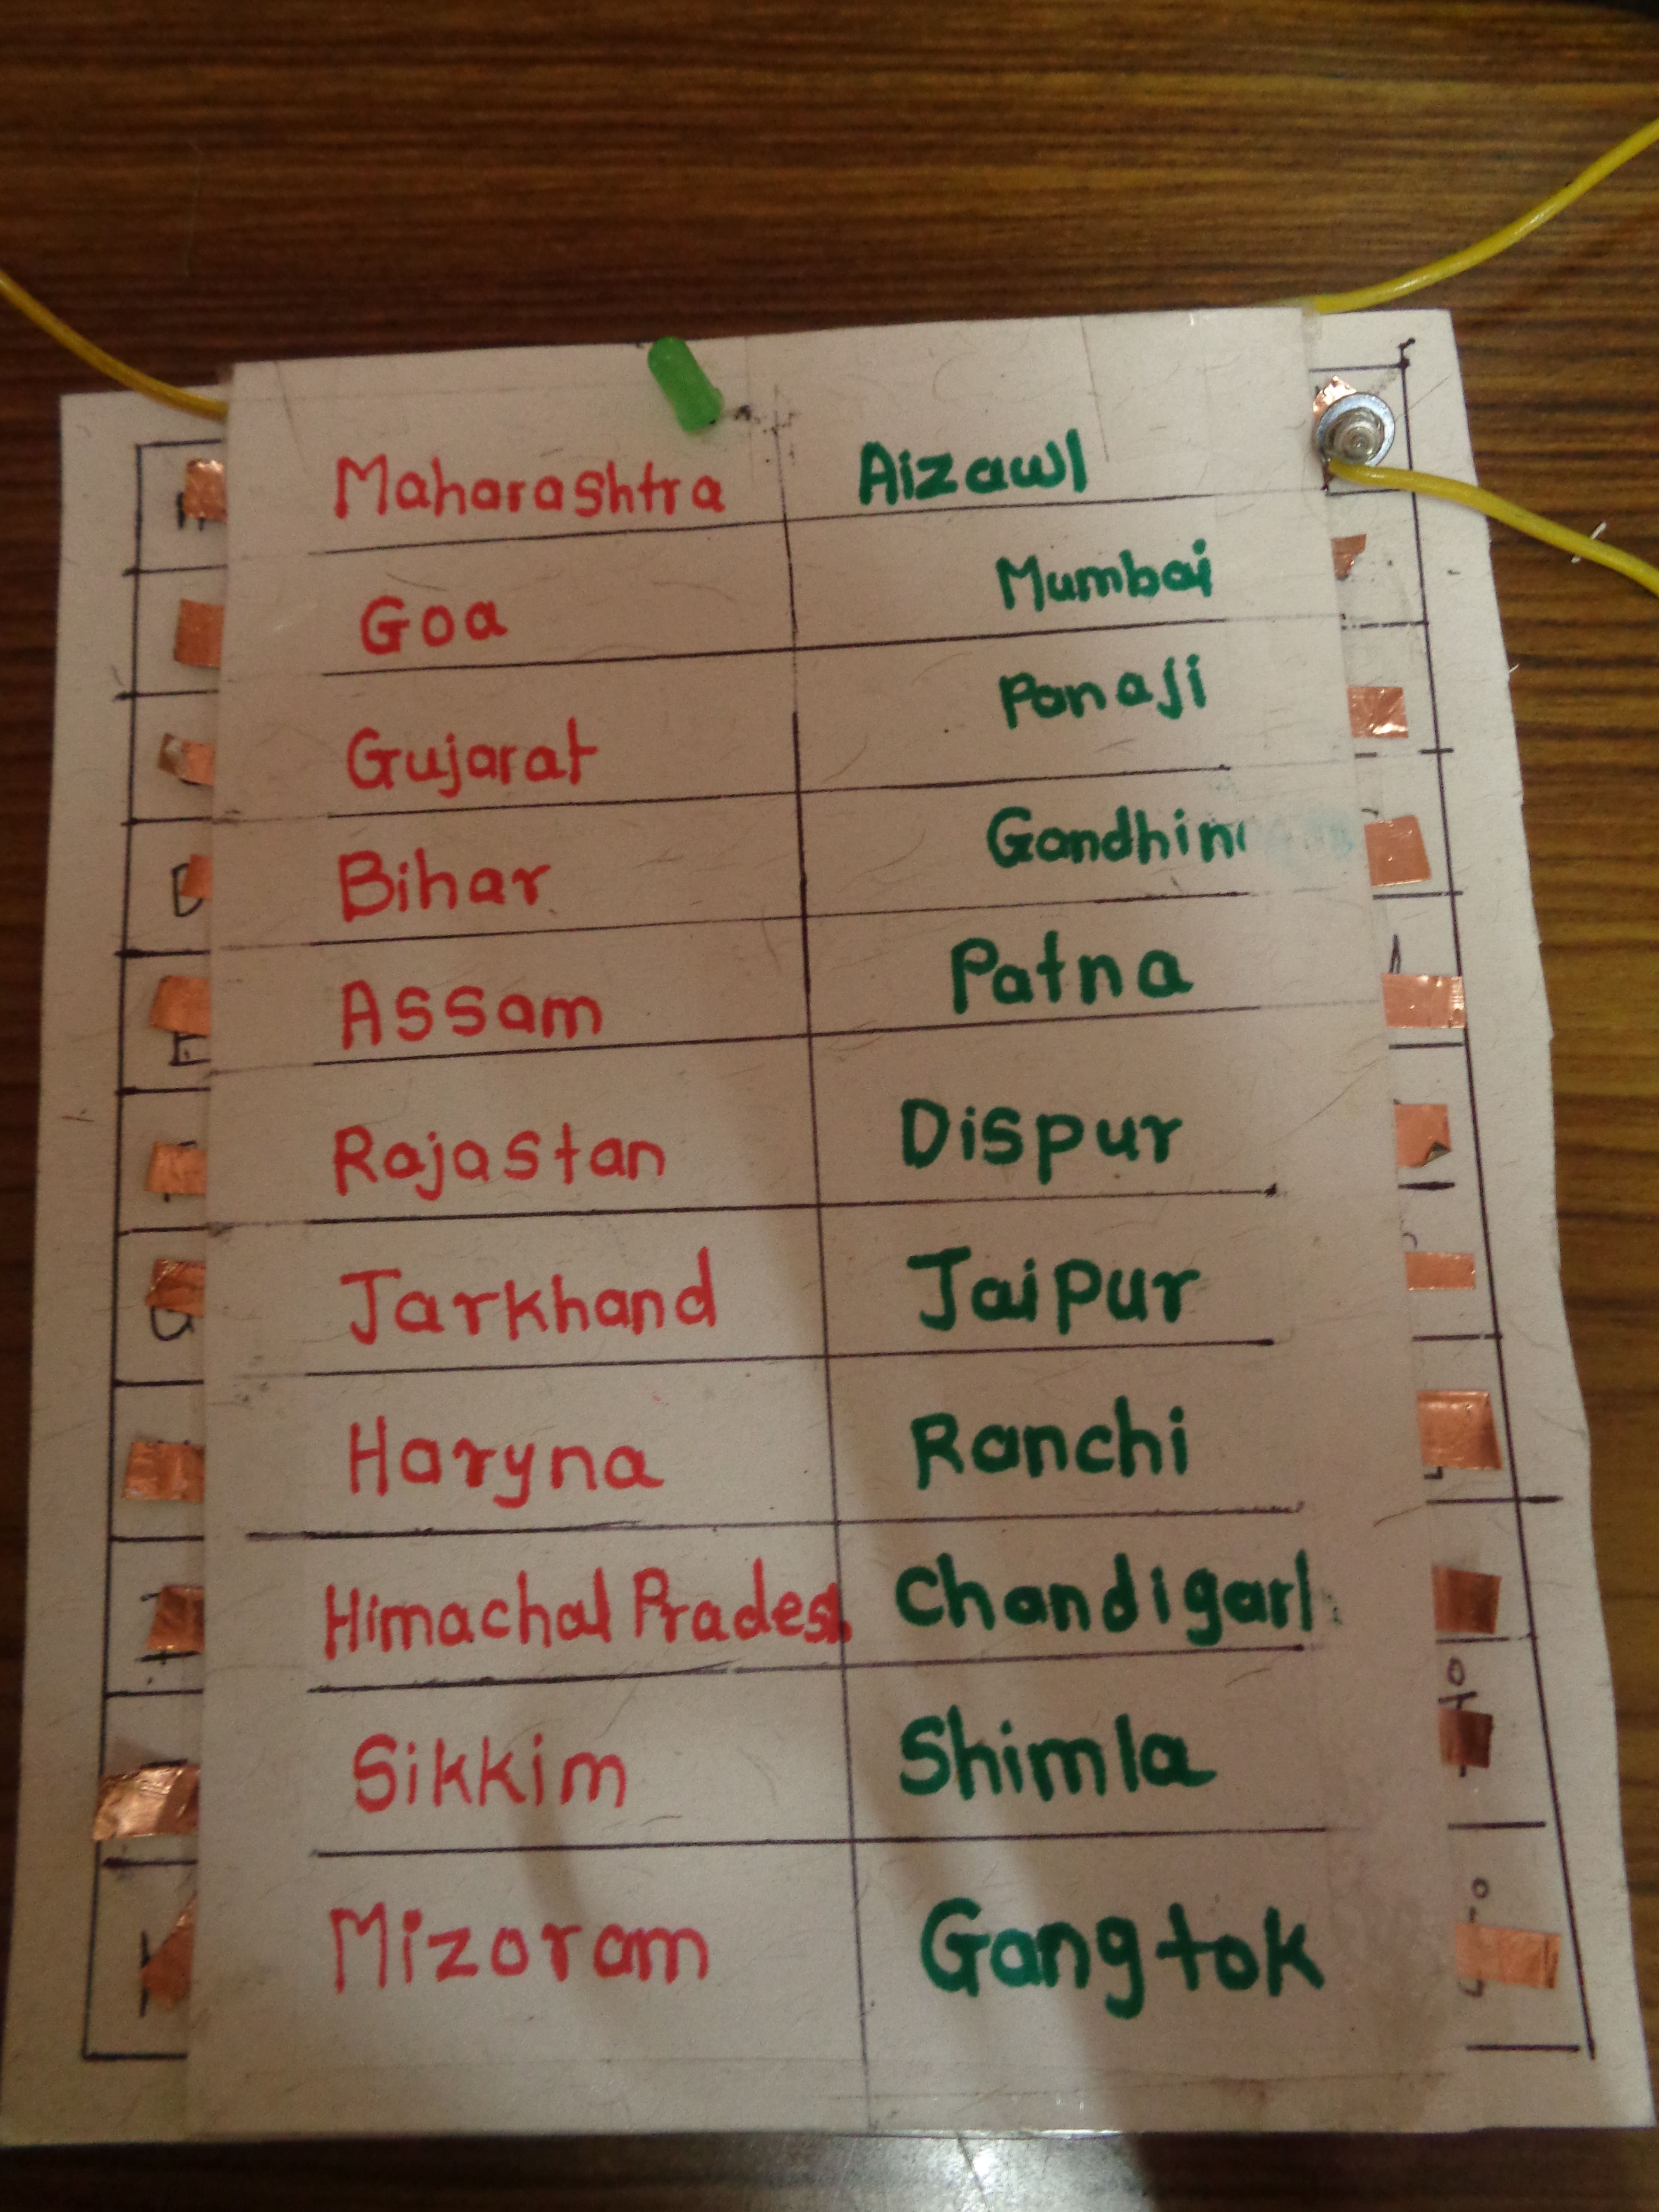 Maharashtra Aizawl
Goa Mumbai
Gujarat Panaji
Bihar
Assam Patna
Rajastan Dispur
Jarkhand Jaipur
Haryna Ranchi
Himachal Pradesh Chandigarh
Sikkim Shimla
Mizoram Gangtok